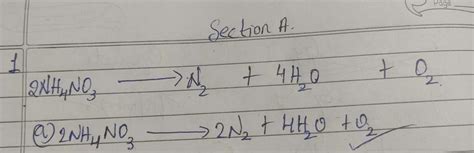 Section A.
1
2NH₄NO₃ ⟶ N₂ + 4H₂O + O₂
a) 2NH₄NO₃ ⟶ 2N₂ + 4H₂O + O₂